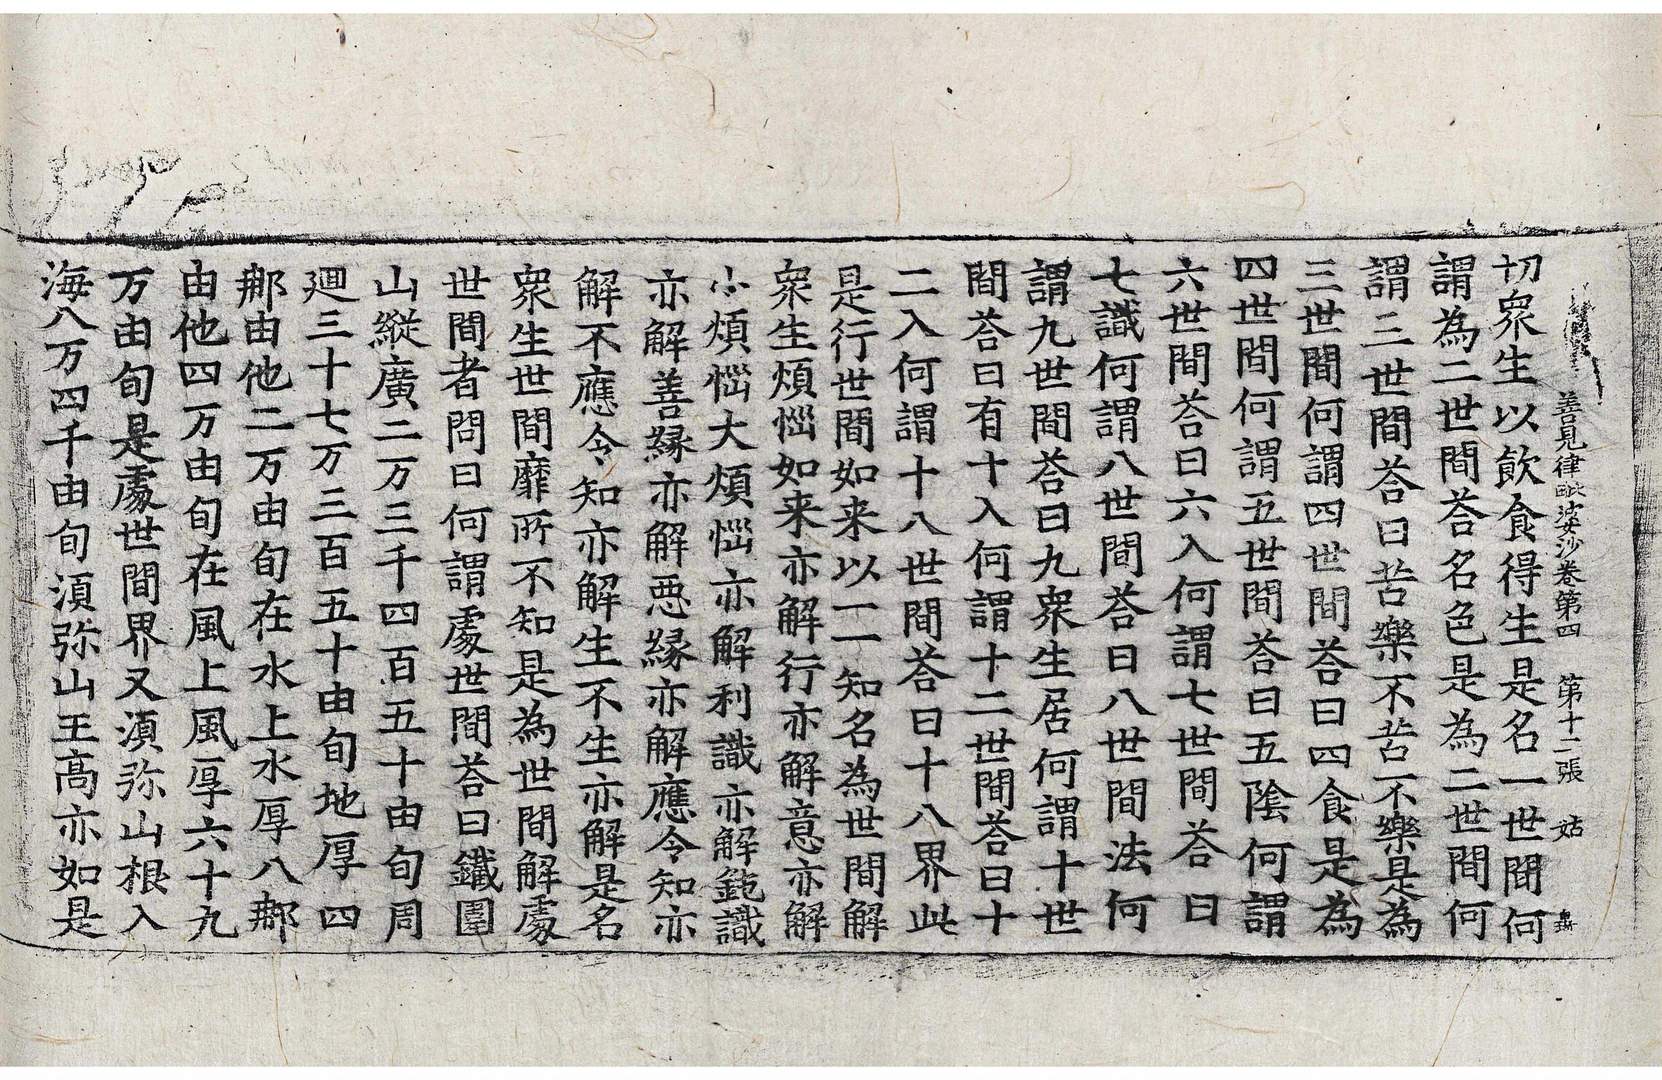 善見律毗婆沙卷第四　第十二張　姑
切衆生以飲食得生是名一世間何
謂為二世間荅名色是為二世間何
謂三世間荅曰苦樂不苦不樂是為
三世間何謂四世間荅曰四食是為
四世間何謂五世間荅曰五陰何謂
六世間荅曰六入何謂七世間荅曰
七識何謂八世間荅曰八世間法何
謂九世間荅曰九衆生居何謂十世
間荅曰有十入何謂十二世間荅曰十
二入何謂十八世間荅曰十八界此
是行世間如来以一一知名為世間解
衆生煩惱如来亦解行亦解意亦解
小煩惱大煩惱亦解利識亦解鈍識
亦解善縁亦解悪縁亦解應令知亦
解不應令知亦解生不生亦解是名
衆生世間靡所不知是為世間解處
世間者問曰何謂處世間荅曰鐵圍
山縱廣二万三千四百五十由旬周
迴三十七万三百五十由旬地厚四
那由他二万由旬在水上水厚八那
由他四万由旬在風上風厚六十九
万由旬是處世間界又湏弥山根入
海八万四千由旬湏弥山王髙亦如是